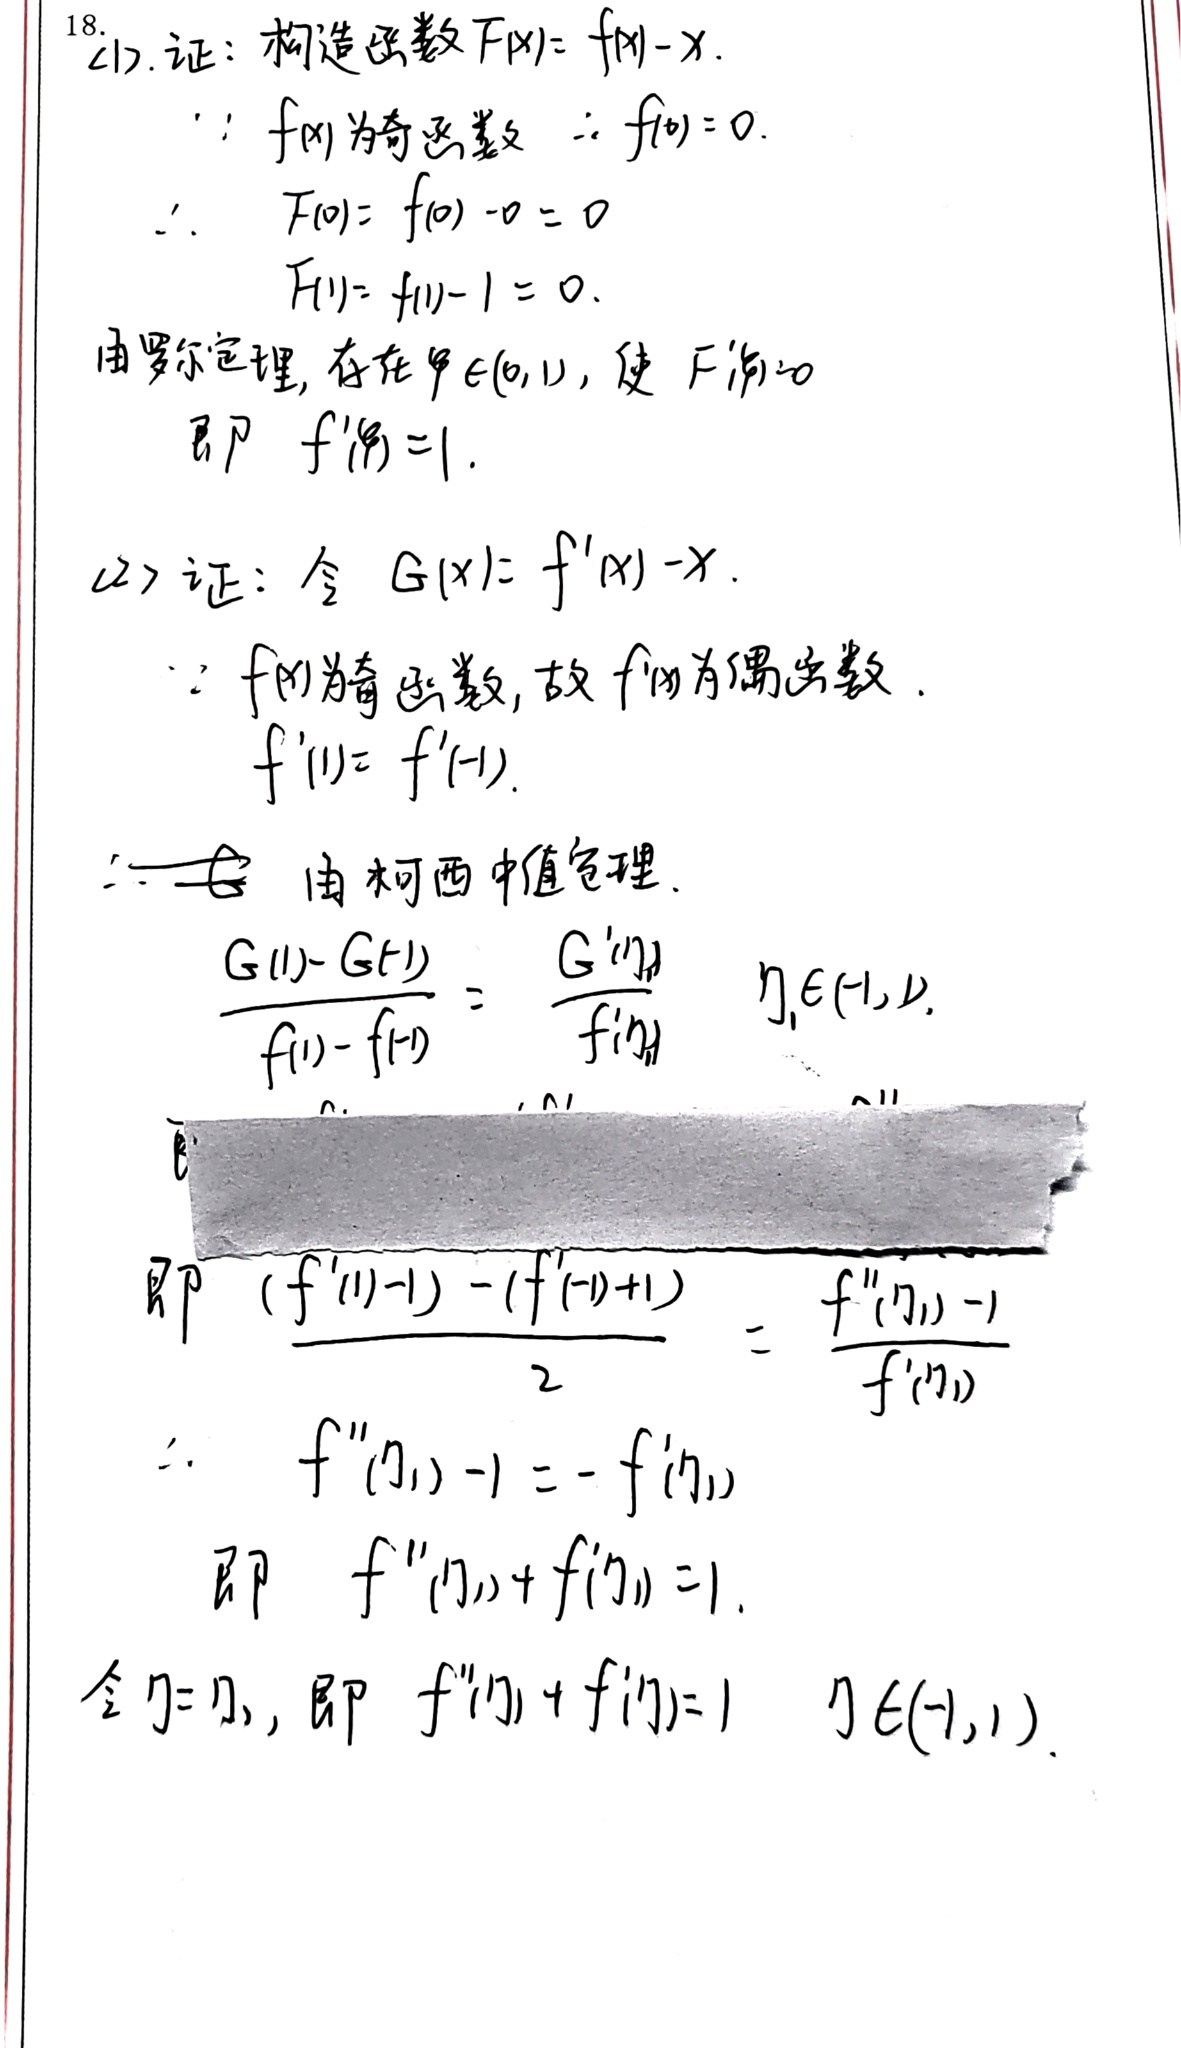 18.
<1>. 证: 构造函数 F(x) = f(x) - x.
∵ f(x) 为奇函数 ∴ f(0) = 0.
∴ F(0) = f(0) - 0 = 0
F(1) = f(1) - 1 = 0.
由罗尔定理, 存在 ξ ∈ (0,1), 使 F'(ξ) = 0
即 f'(ξ) = 1.
<2> 证: 令 G(x) = f'(x) - x.
∵ f(x) 为奇函数, 故 f'(x) 为偶函数.
f'(1) = f'(-1).
∴ 由柯西中值定理.
G(1) - G(-1) / f(1) - f(-1) = G'(η₁) / f'(η₁) η₁ ∈ (-1, 1).
即 (f'(1) - 1) - (f'(-1) + 1) / 2 = f''(η₁) - 1 / f'(η₁)
∴ f''(η₁) - 1 = - f'(η₁)
即 f''(η₁) + f'(η₁) = 1.
令 η = η₁, 即 f''(η) + f'(η) = 1 η ∈ (-1, 1).